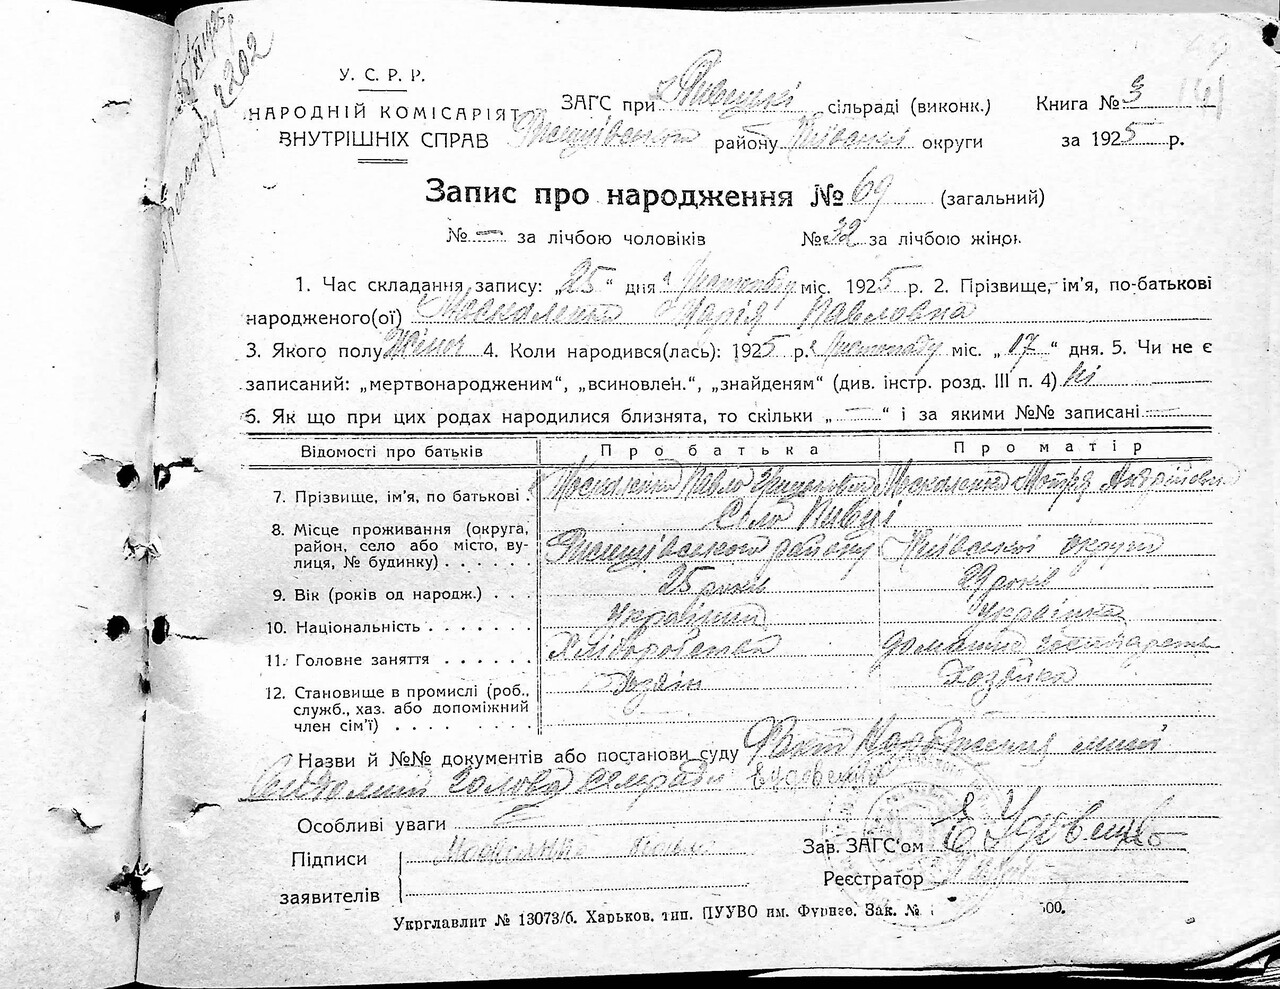 У. С. Р. Р.
НАРОДНІЙ КОМІСАРІЯТ
ВНУТРІШНІХ СПРАВ
ЗАГС при Пивецькі сільраді (виконк.) Книга № 3
району Київської округи за 1925 р.
Запис про народження № 69 (загальний)
№ — за лічбою чоловіків № 32 за лічбою жінок
1. Час складання запису: „25“ дня Листопаду міс. 1925 р. 2. Прізвище, ім'я, по-батькові
народженого(ої) Москаленко Марія Павловна
3. Якого полу Жіноч 4. Коли народився(лась): 1925 р. Листопаду міс. „17“ дня. 5. Чи не є
записаний: „мертвонародженим“, „всиновлен.“, „знайденям“ (див. інстр. розд. III п. 4) ні
6. Як що при цих родах народилися близнята, то скільки „—“ і за якими №№ записані
Відомості про батьків Про батька Про матір
7. Прізвище, ім'я, по батькові Москаленко Павло Москаленко Мотря Андріївна
Село Пивці
8. Місце проживання (округа,
район, село або місто, ву-
лиця, № будинку) району Київської округи
9. Вік (років од народж.) 25 років 29 років
10. Національність Українець Українка
11. Головне заняття Хліборобство домашнє господарство
12. Становище в промислі (роб.,
служб., хаз. або допоміжний
член сім'ї) Хозяїн Хазяйка
Назви й №№ документів або постанови суду Факт Народження мині
Свідомий Голова сельради Е Удовенко
Особливі уваги
Підписи
заявителів
Москаленко Павло
Зав. ЗАГС'ом Е Удовенко
Реєстратор
Укрглавлит № 13073/б. Харьков. тип. ПУУВО им. Фрунзе. Зак. №